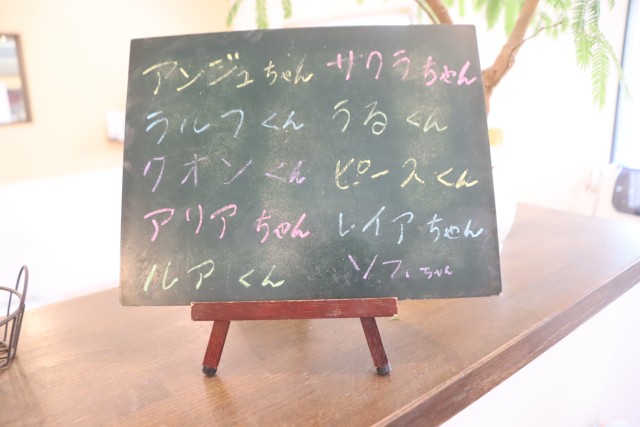 アンジュちゃん サクラちゃん
ラルフくん うるくん
クオンくん ピースくん
アリアちゃん レイアちゃん
ルアくん ソフィちゃん